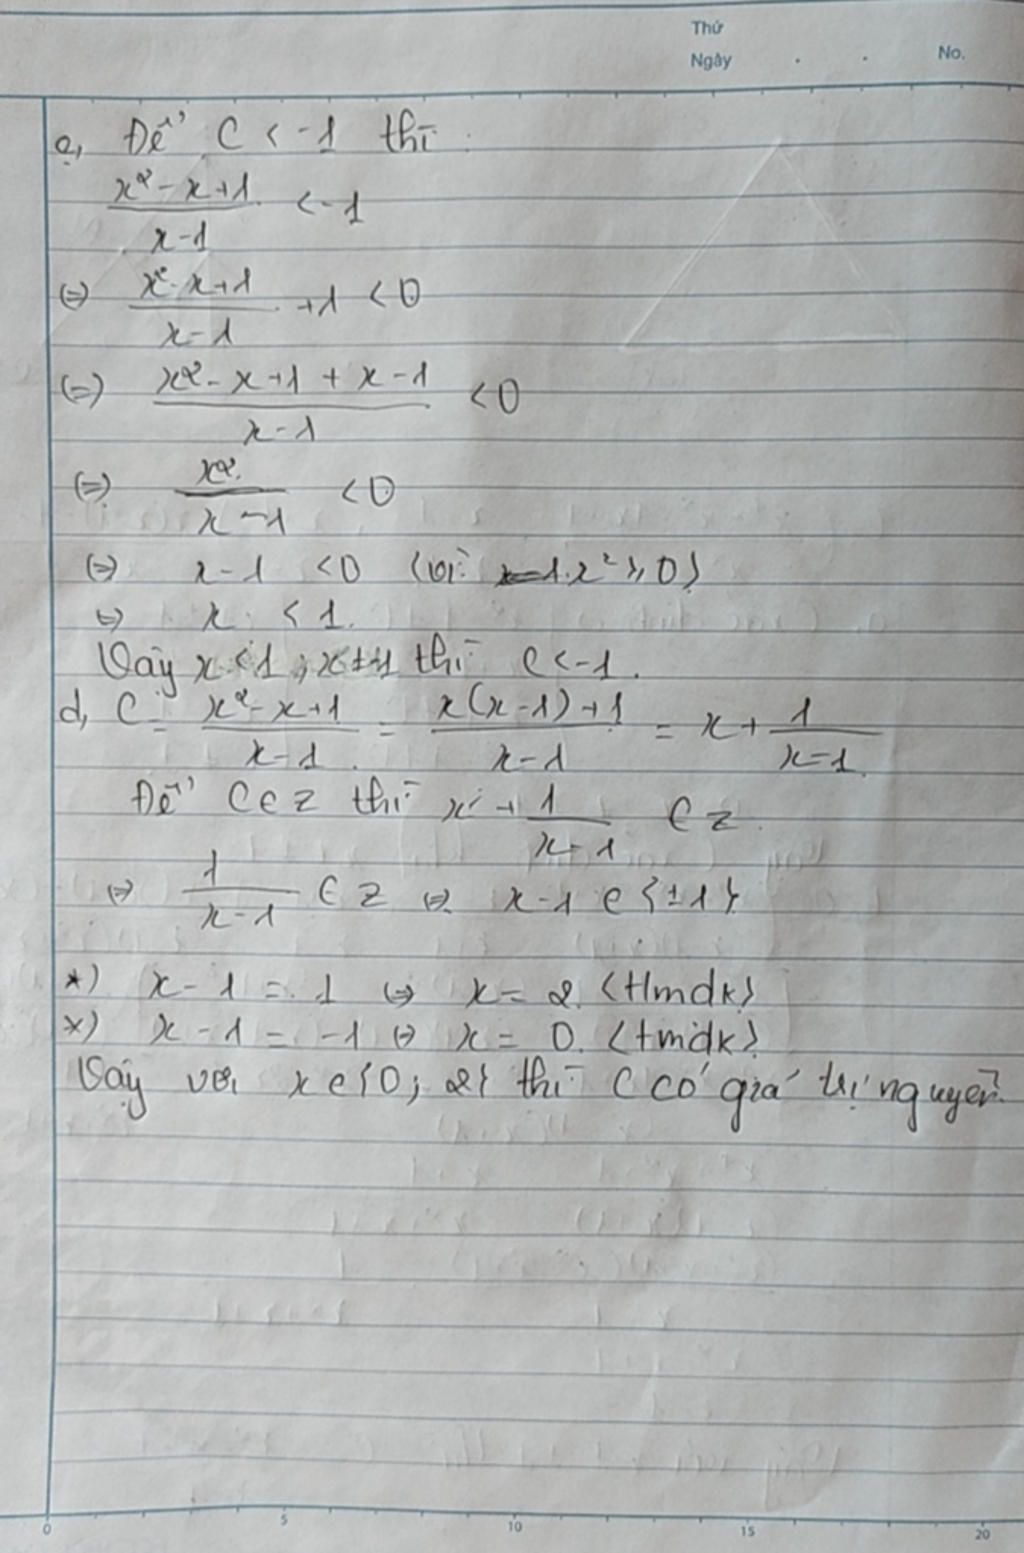 Thứ
Ngày . . No.
c, Để C < -1 thì :
(x² - x + 1)/(x - 1) < -1
(=) (x² - x + 1)/(x - 1) + 1 < 0
(=) (x² - x + 1 + x - 1)/(x - 1) < 0
(=) x²/(x - 1) < 0
(=) x - 1 < 0 (vì x² ≥ 0)
(=) x < 1.
Vậy x < 1 ; x ≠ -1 thì C < -1.
d, C = (x² - x + 1)/(x - 1) = (x(x - 1) + 1)/(x - 1) = x + 1/(x - 1)
Để C ∈ Z thì x + 1/(x - 1) ∈ Z
(=) 1/(x - 1) ∈ Z (=) x - 1 ∈ {±1}
*) x - 1 = 1 (=) x = 2 (tmđk)
*) x - 1 = -1 (=) x = 0. (tmđk)
Vậy với x ∈ {0; 2} thì C có giá trị nguyên.
0 5 10 15 20